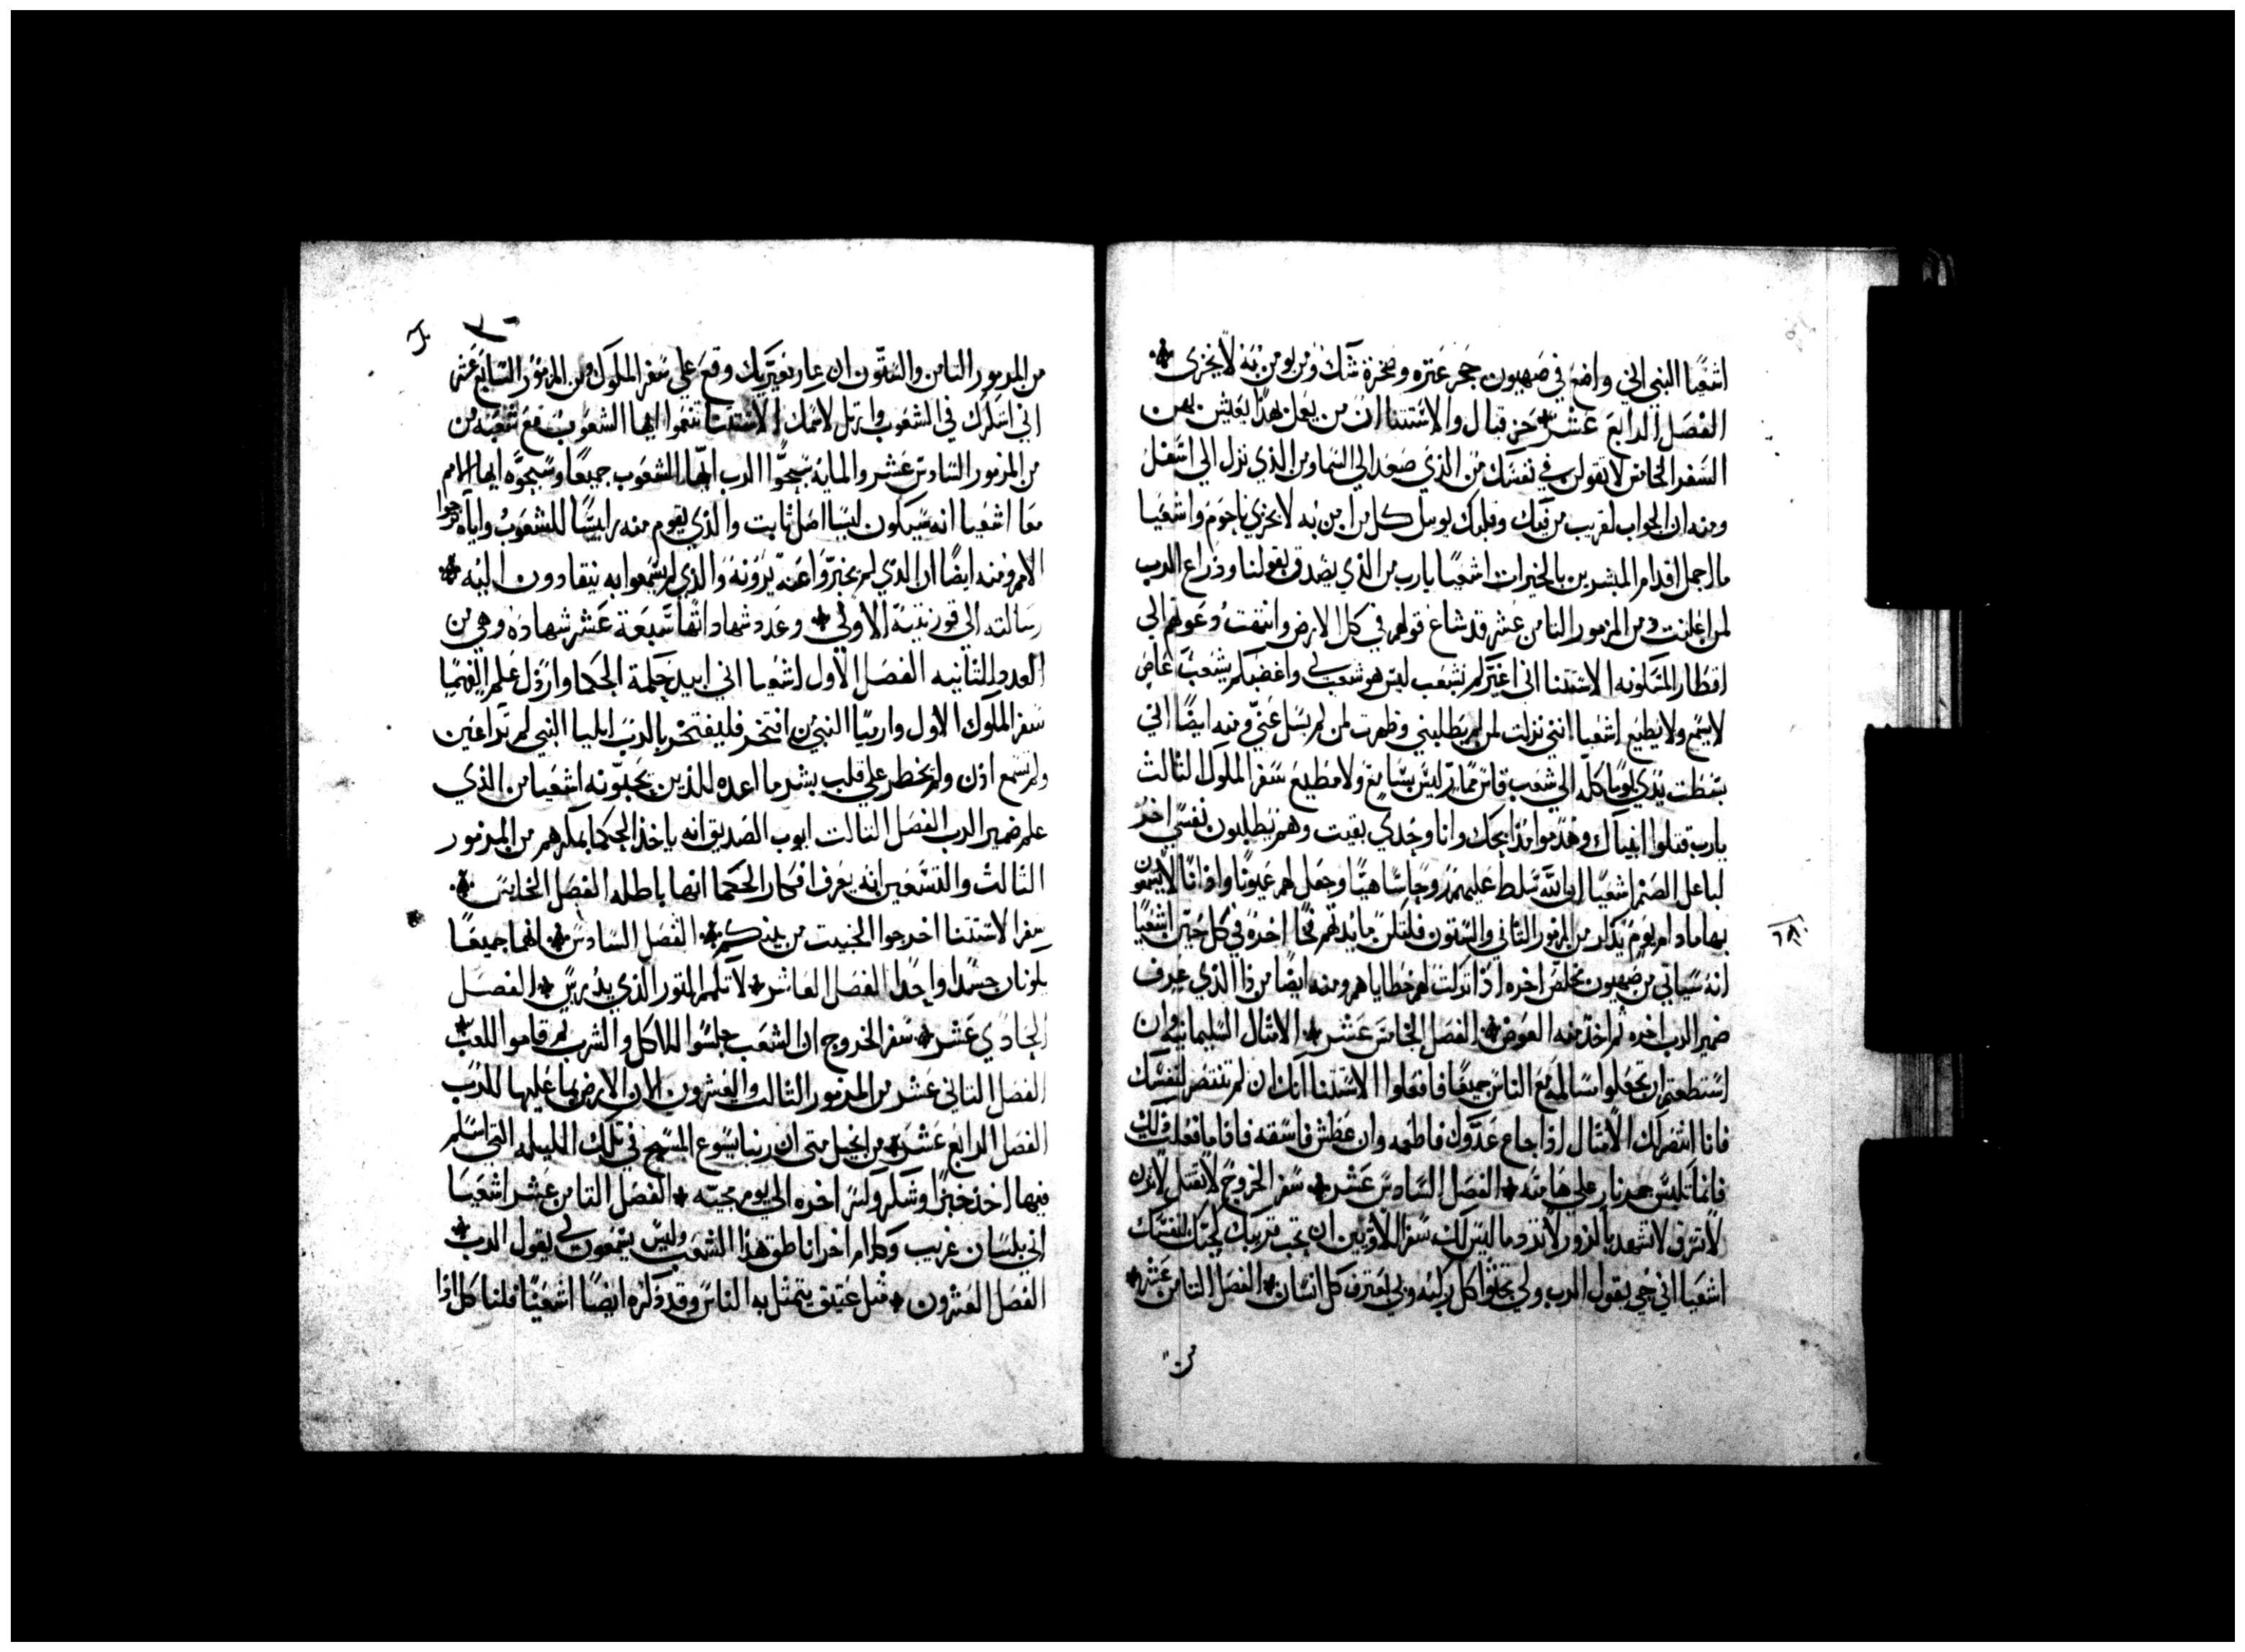 اشعيا النبي اني واضع في صهيون حجر عتره وصخرة شك ومن يومن به لا يخزى
الفصل الرابع عشر حزقيال والاستثنا ان من يعمل بهذا يعيش بهن
السفر الخامس لا تقولن في نفسك من الذي صعد الي السما ومن الذي نزل الي اسفل
ومنه ان الجواب لقريب من فمك وقلبك يوييل كل من امن به لا يخزي ناحوم واشعيا
ما اجمل اقدام المبشرين بالخيرات اشعيا يا رب من الذي يصدق بقولنا وذراع الرب
لمن اعلنت ومن المزمور الثامن عشر قد شاع قولهم في كل الارض وانتهت دعوتهم الي
اقطار المسكونه الاستثنا اني اغيركم بشعب ليس هو شعب لي واغضبكم بشعب عاص
لا يسمع ولا يطيع اشعيا انني نزلت لمن لم يطلبني وظهرت لمن لم يسل عني ومنه ايضا اني
بسطت يدي يوما كله الي شعب قاس ممار ليس بسامع ولا مطيع سفر الملوك الثالث
يا رب قتلوا انبياك وهدموا مذابحك وانا وحدي بقيت وهم يطلبون نفسي اخذ
لباعل الصنم اشعيا ان الله سلط عليهم روحا ساهيا وجعل لهم عيونا واذانا لا يسمعون
بها ما دام يوم يذكر من المزمور الثاني والستون فلتكن مايدتهم فخا اخذه في كل حين اشعيا
انه سياتي من صهيون مخلص اخره اذا تركت لهم خطاياهم ومنه ايضا من ذا الذي عرف
ضمير الرب اخره ثم اخذ منه العوض الفصل الخامس عشر الامثال السليمانيه وان
استطعتم ان تجعلوا مسالمه مع الناس جميعا فافعلوا الاستثنا انك ان لم تنتصر لنفسك
فانا انتصر لك الامثال اذا جاع عدوك فاطعمه وان عطش فاسقه فاذا ما فعلت ذلك
فانما تلبس جمر نار علي هامته الفصل السادس عشر سفر الخروج لا تقتل لا تزن
لا تسرق لا تشهد بالزور لا تود ما ليس لك سفر اللاويين ان تحب قريبك كحبك لنفسك
اشعيا اني حي يقول الرب ولي تجثوا كل ركبه وبي يعترف كل انسان الفصل الثامن عشر
من
من المزمور الثامن والستون ان عار معيريك وقع علي سفر الملوك ومن المزمور السابع عشر
اني اشكرك في الشعوب وارتل لاسمك الاستثنا تنعموا ايها الشعوب مع شعبه من
من المزمور السادس عشر والمايه سبحوا الرب ايها الشعوب جميعا وسبحوه ايها الامم
معا اشعيا انه سيكون ليسا اصل ثابت والذي يقوم منه راييسا للشعوب واياه ترجوا
الامم ومنه ايضا ان الذي لم يخبروا عنه يرونه والذي لم يسمعوا به ينقادون اليه
رسالته الي قورنتية الاولي وعدد شهاداتها سبعة عشر شهاده وهي من
العدد الثانيه الفصل الاول اشعيا اني ابيد حكمة الحكما وارذل علم الفهما
سفر الملوك الاول وارميا النبي من افتخر فليفتخر بالرب ايليا النبي لم تر اعين
ولم تسمع اذن ولم يخطر علي قلب بشر ما اعده للذين يحبونه اشعيا من الذي
علم ضمير الرب الفصل الثالث ايوب الصديق انه ياخذ الحكما بمكرهم من المزمور
الثالث والتسعين انه يعرف افكار الحكما انها باطله الفصل الخامس
سفر الاستثنا اخرجوا الخبيث من بينكم الفصل السادس انهما جميعا
يكونان جسدا واحدا الفصل العاشر لا تكمم الثور الذي يدرس الفصل
الحادي عشر سفر الخروج ان الشعب جلسوا للاكل والشرب ثم قاموا للعب
الفصل الثاني عشر من المزمور الثالث والعشرون لان الارض بما عليها للرب
الفصل الرابع عشر من انجيل متى ان ربنا يسوع المسيح في تلك الليله التي اسلم
فيها اخذ خبزا وشكر وكسر اخره الي يوم مجيه الفصل الثامن عشر اشعيا
اني بلسان غريب وكلام اخر اناطق هذا الشعب وليس يسمعون لي يقول الرب
الفصل العشرون مثل عتيق يتمثل به الناس وقد ذكره ايضا اشعيا فلنا كل اذا